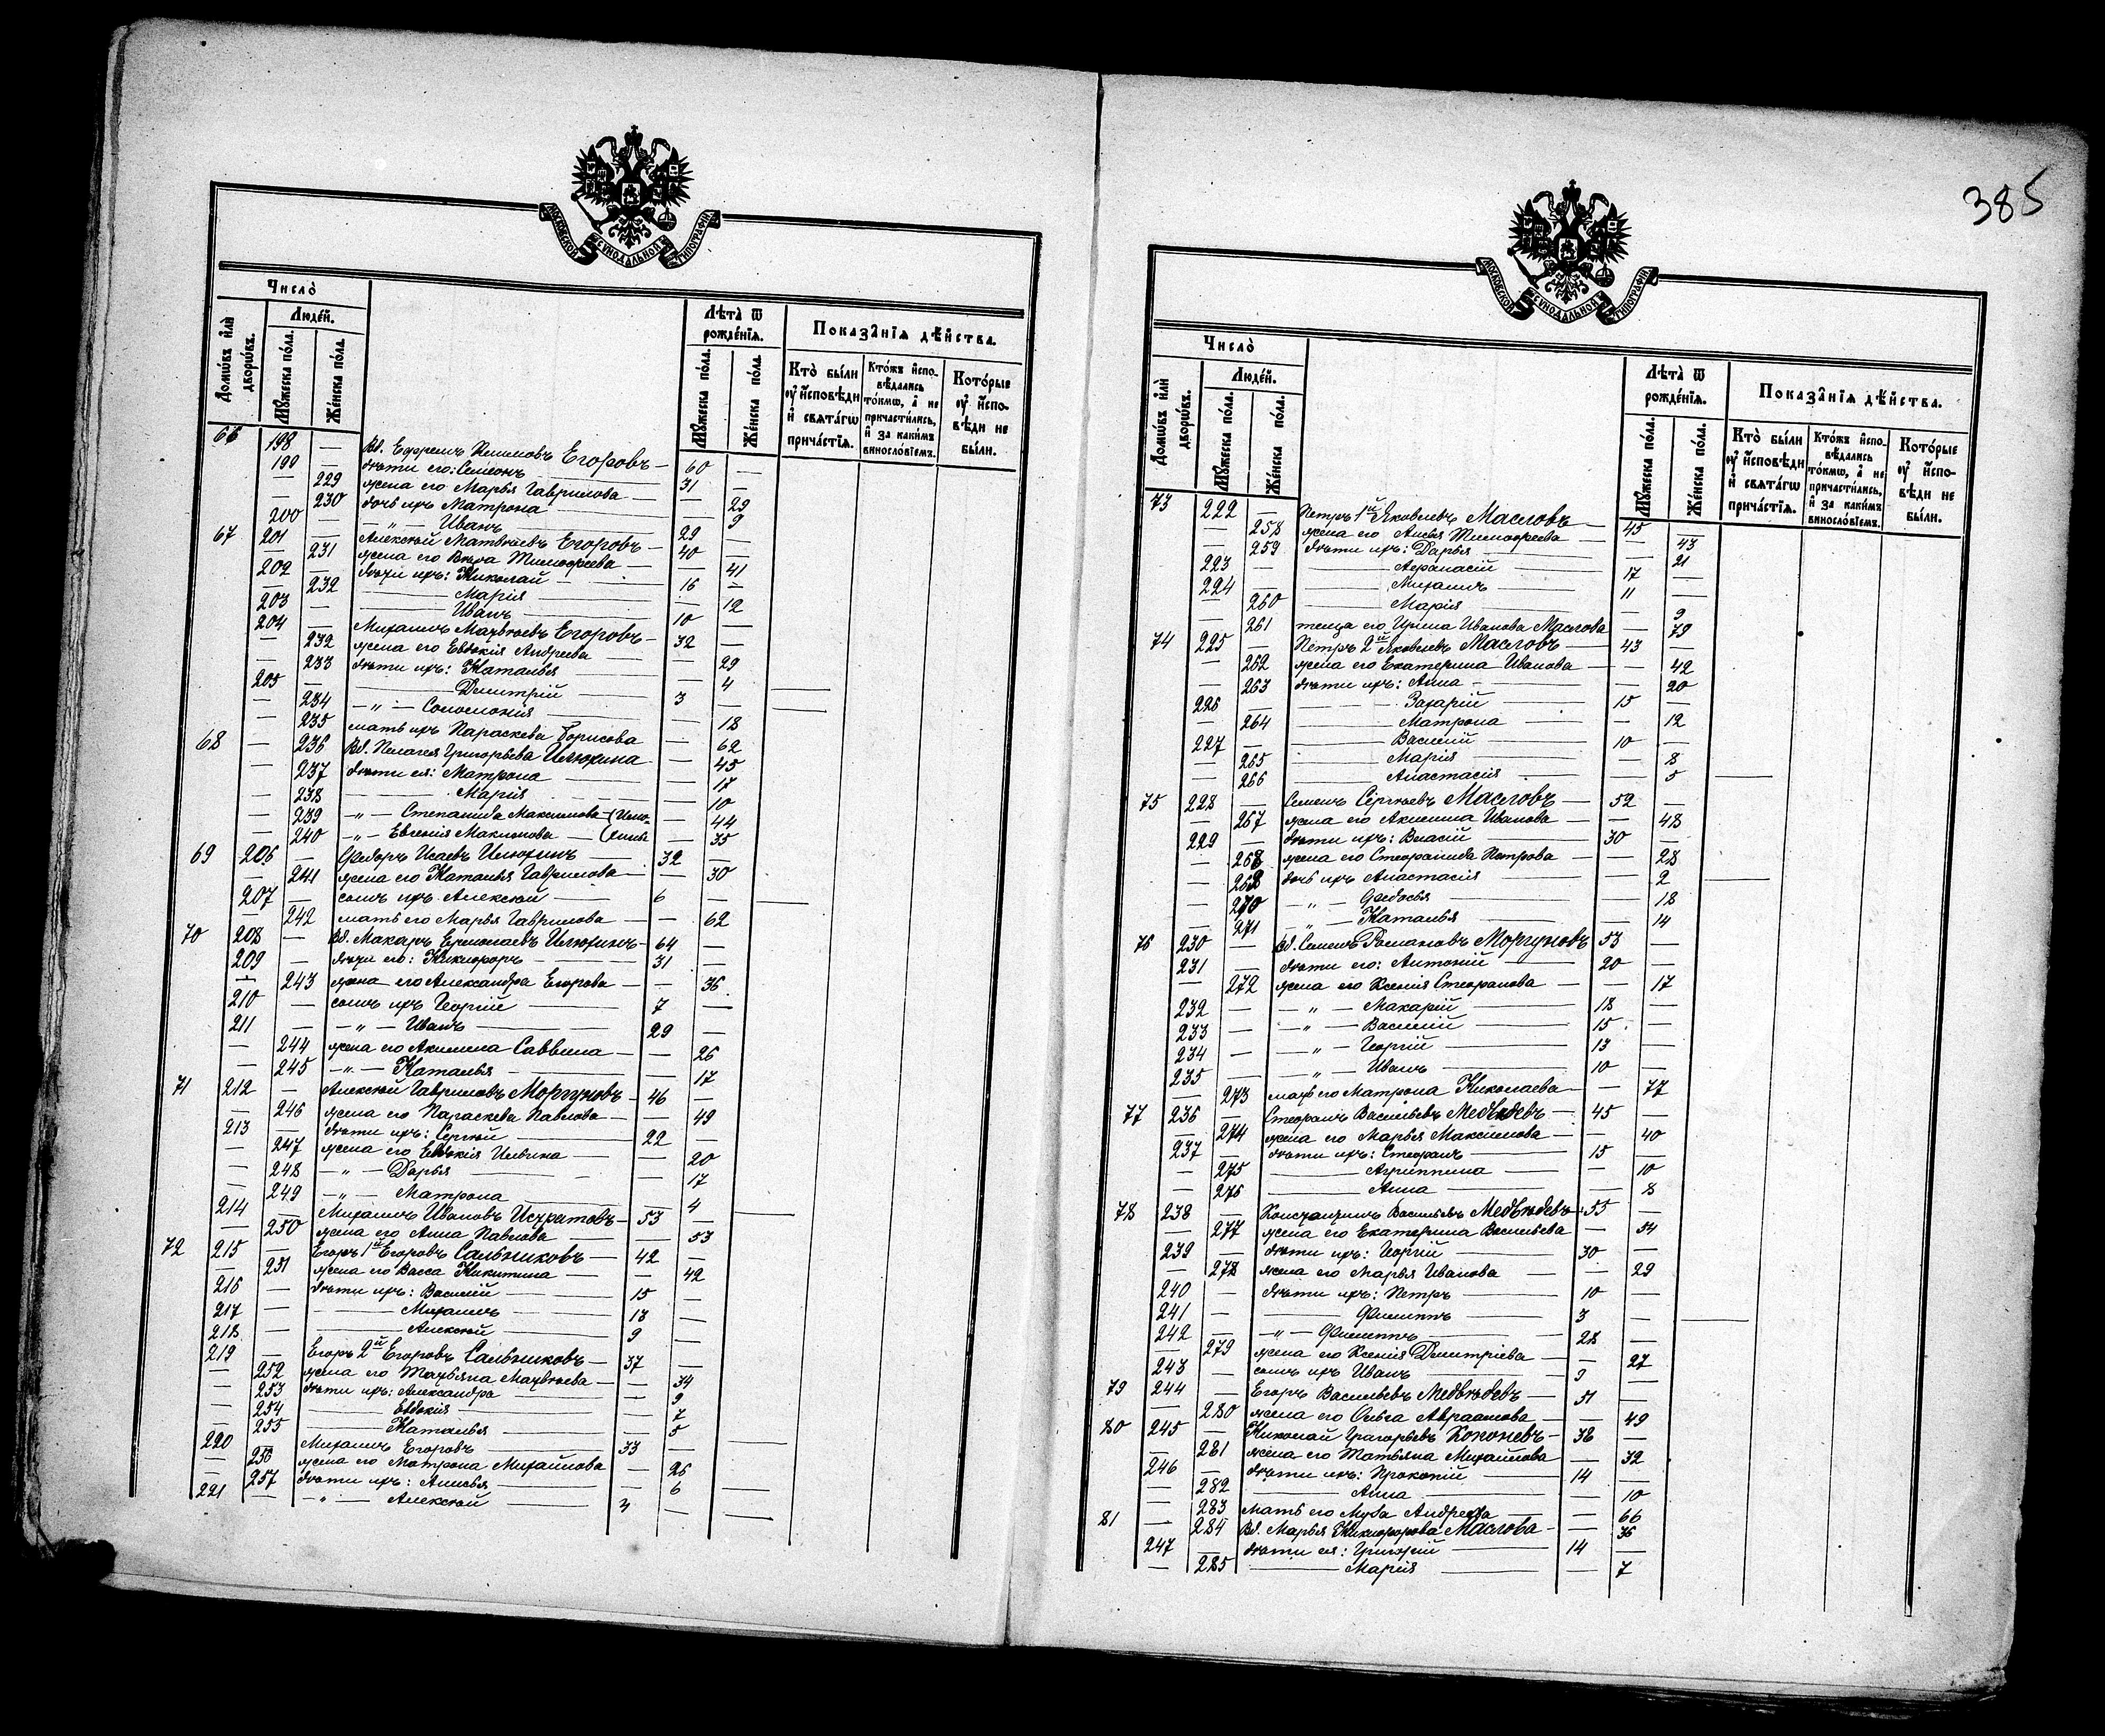 385
МОСКОВСКОЙ СѴНОДАЛЬНОЙ ТИПОГРАФІИ
Число̀
Домѡ́въ и҆лѝ дворѡ́въ.
Люде́й.
Мꙋ́жеска по́ла.
Же́нска по́ла.
Лѣ́та ѿ рожде́нїѧ.
Мꙋ́жеска по́ла.
Же́нска по́ла.
Показа̑нїѧ дѣ́йства.
Кто̀ бы́ли ᲂу҆ и҆сповѣ́ди и҆ свѧта́гѡ прича́стїѧ.
Кто́жъ и҆сповѣ́дались то́кмѡ, а҆ не причасти́лись, и҆ за каки́мъ виносло́вїемъ.
Кото́рые ᲂу҆ и҆сповѣ́ди не бы́ли.
66 198 — Вд. Ефремъ Егоровъ — 60 —
199 — дѣти его: Семеонъ 31 —
— 229 жена его Марья Гаврилова — — 29
— 230 дочь ихъ Матрона — — 9
200 — — " — Иванъ — 29 —
67 201 — Алексѣй Матвѣевъ Егоровъ — 40 —
— 231 жена его Вѣра Тимофеева — — 41
202 — дѣти ихъ: Николай — 16 —
— 232 — Марія — — 12
203 — — Иванъ — 10 —
204 — Михаилъ Матвѣевъ Егоровъ — 32 —
— 232 жена его Евдокія Андреева — — 29
— 233 дѣти ихъ: Наталья — — 4 —
205 — — Димитрій — 3 — —
— 234 — " — Соломонія — — 18
— 235 мать ихъ Параскева Борисова — 62
68 — 236 Вд. Пелагея Григорьева Илюхина — 45
— 237 дѣти ея: Матрона — — 17
— 238 — Марія — — 10
— 239 — " — Степанида Максимова — — 44
— 240 — " — Евгенія — — 35
69 206 — Ѳедоръ Исаевъ Илюхинъ — 32 —
— 241 жена его Наталья Гаврилова — — 30
207 — сынъ ихъ Алексѣй — 6 — —
— 242 мать его Марья Гаврилова — — 62
70 208 — Вд. Макаръ Ермолаевъ Илюхинъ — 64 —
209 — дѣти его: Никифоръ — 31 —
— 243 жена его Александра Егорова — — 36
210 — сынъ ихъ Георгій — 7 —
211 — — " — Иванъ — 29 —
— 244 жена его Акилина Саввина — — 26
— 245 — " — Наталья — — 17
71 212 — Алексѣй Гавриловъ Моргуновъ — 46 —
— 246 жена его Параскева Павлова — — 49
213 — дѣти ихъ: Сергѣй — 22 —
— 247 жена его Евдокія Ильина — — 20
— 248 — " — Дарья — — 17
— 249 — " — Матрона — — 4 —
214 — Михаилъ Ивановъ — 53 —
— 250 жена его Анна Павлова — — 53
72 215 — Егоръ 1й Егоровъ Сальниковъ — 42 —
— 251 жена его Васса Никитина — — 42
216 — дѣти ихъ: Василій — 15 —
217 — — Михаилъ — 13 —
218 — — Алексѣй — 9 —
219 — Егоръ 2й Егоровъ Сальниковъ — 37 —
— 252 жена его Татьяна Матвѣева — — 34
— 253 дѣти ихъ: Александра — — 9
— 254 — Евдокія — — 7
— 255 — Наталья — — 5 —
220 — Михаилъ Егоровъ — 33 —
— 256 жена его Матрона Михайлова — 26
— 257 дѣти ихъ: — — 6 —
221 — — " — Алексѣй — 4 — —
Число̀
Домѡ́въ и҆лѝ дворѡ́въ.
Люде́й.
Мꙋ́жеска по́ла.
Же́нска по́ла.
Лѣ́та ѿ рожде́нїѧ.
Мꙋ́жеска по́ла.
Же́нска по́ла.
Показа̑нїѧ дѣ́йства.
Кто̀ бы́ли ᲂу҆ и҆сповѣ́ди и҆ свѧта́гѡ прича́стїѧ.
Кто́жъ и҆сповѣ́дались то́кмѡ, а҆ не причасти́лись, и҆ за каки́мъ виносло́вїемъ.
Кото́рые ᲂу҆ и҆сповѣ́ди не бы́ли.
МОСКОВСКОЙ СѴНОДАЛЬНОЙ ТИПОГРАФІИ
73 222 — Петръ 1й Яковлевъ Масловъ — 45 —
— 258 жена его Анисья Тимофеева — — 43
— 259 дѣти ихъ: Дарья — — 21
223 — — Афанасій — 17 —
224 — — Михаилъ — 11 —
— 260 — Марія — — 9
— 261 теща его Ирина Иванова Маслова — 79
74 225 — Петръ 2й Яковлевъ Масловъ — 43 —
— 262 жена его Екатерина Иванова — — 42
— 263 дѣти ихъ: Анна — — 20
226 — — Захарій — 15 —
— 264 — Матрона — — 12
227 — — Василій — 10 —
— 265 — Марія — — 8
— 266 — Анастасія — — 5 —
75 228 — Семенъ Сергѣевъ Масловъ — 52 —
— 267 жена его Акилина Иванова — — 48
229 — дѣти ихъ: Власій — 30 —
— 268 жена его Стефанида Петрова — — 28
— 269 дочь ихъ Анастасія — — 2 —
— 270 — " — Федосья — — 18
— 271 — " — Наталья — — 14
76 230 — Вд. Семенъ Романовъ Моргуновъ 53 —
231 — дѣти его: Антоній — 20 —
— 272 жена его Ксенія Стефанова — — 17
232 — — " — Макарій — 18 —
233 — — " — Василій — 15 —
234 — — " — Георгій — 13 —
235 — — " — Иванъ — 10 —
— 273 мать его Матрона Николаева — — 77
77 236 — Стефанъ Васильевъ Медвѣдевъ — 45 —
— 274 жена его Марья Максимова — — 40
237 — дѣти ихъ: Стефанъ — 15 —
— 275 — Агриппина — — 10
— 276 — Анна — — 8
78 238 — Константинъ Васильевъ Медвѣдевъ 55 —
— 277 жена его Екатерина Васильева — 54
239 — дѣти ихъ: Георгій — 30 —
— 278 жена его Марья Иванова — — 29
240 — дѣти ихъ: Петръ — 10 —
241 — — Филиппъ — 3 — —
242 — — " — Филиппъ — 28 —
— 279 жена его Ксенія Дмитріева — — 27
243 — сынъ ихъ Иванъ — 3 —
79 244 — Егоръ Васильевъ Медвѣдевъ — 51 —
— 280 жена его Ольга Авраамова — — 49
80 245 — Николай Григорьевъ Кононевъ — 38 —
— 281 жена его Татьяна Михайлова — 32
246 — дѣти ихъ: Прокопій — 14 —
— 282 — Анна — — 10
— 283 Мать его Андреева — — 66
81 — 284 Вд. Марья Никифорова Маслова — — 36
247 — дѣти ея: Григорій — 14 —
— 285 — Марія — — 7